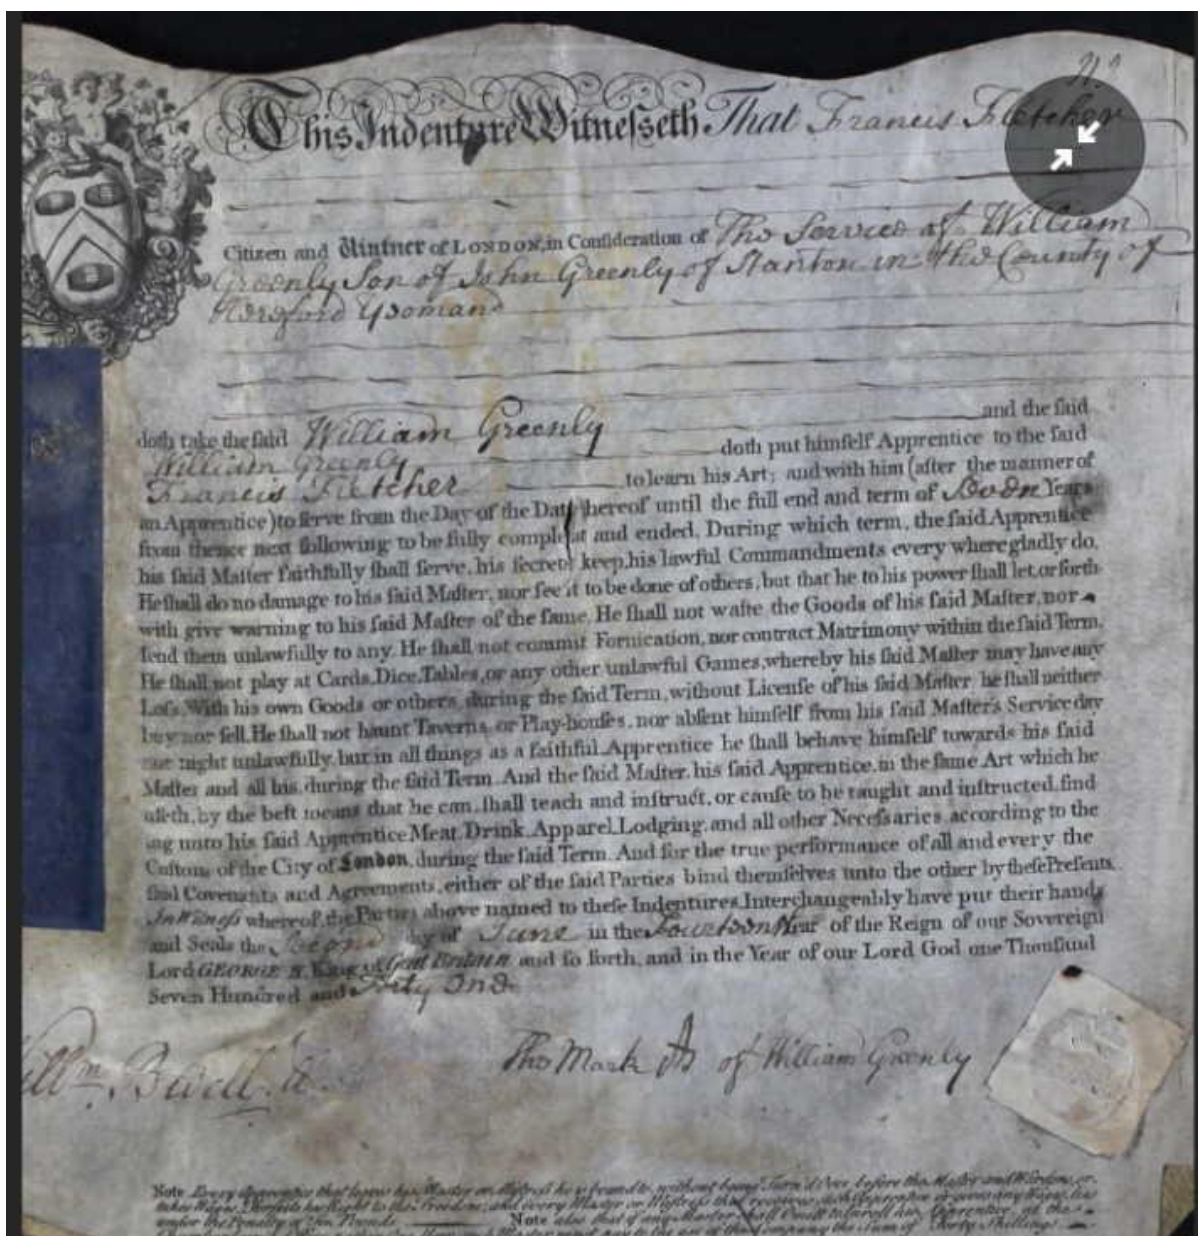 N.o
This Indenture Witneſseth That Francis Fletcher
Citizen and Vintner of LONDON, in Conſideration of The Service of William
Greenly Son of John Greenly of Stanton in the County of
Hereford Yeoman
doth take the ſaid William Greenly and the ſaid
William Greenly doth put himſelf Apprentice to the ſaid
Francis Fletcher to learn his Art; and with him (after the manner of
an Apprentice) to ſerve from the Day of the Date hereof until the full end and term of Seven Years
from thence next following to be fully compleat and ended. During which term, the ſaid Apprentice
his ſaid Maſter faithfully ſhall ſerve, his ſecrets keep, his lawful Commandments every where gladly do.
He ſhall do no damage to his ſaid Maſter, nor ſee it to be done of others, but that he to his power ſhall let, or forth
with give warning to his ſaid Maſter of the ſame. He ſhall not waſte the Goods of his ſaid Maſter, nor
lend them unlawfully to any. He ſhall not commit Fornication, nor contract Matrimony within the ſaid Term.
He ſhall not play at Cards, Dice, Tables, or any other unlawful Games, whereby his ſaid Maſter may have any
Loſs. With his own Goods or others, during the ſaid Term, without Licenſe of his ſaid Maſter he ſhall neither
buy nor ſell. He ſhall not haunt Taverns, or Play-houſes, nor abſent himſelf from his ſaid Maſter's Service day
nor night unlawfully, but in all things as a faithful Apprentice he ſhall behave himſelf towards his ſaid
Maſter and all his, during the ſaid Term. And the ſaid Maſter, his ſaid Apprentice, in the ſame Art which he
uſeth, by the beſt means that he can, ſhall teach and inſtruct, or cauſe to be taught and inſtructed, find
ing unto his ſaid Apprentice Meat, Drink, Apparel, Lodging, and all other Neceſsaries, according to the
Cuſtom of the City of London, during the ſaid Term. And for the true performance of all and every the
ſaid Covenants and Agreements, either of the ſaid Parties bind themſelves unto the other by theſe Preſents.
In Witneſs whereof, the Parties above named to theſe Indentures Interchangeably have put their hands
and Seals the Second day of June in the Fourteenth Year of the Reign of our Sovereign
Lord GEORGE II. King of Great Britain and ſo forth, and in the Year of our Lord God one Thouſand
Seven Hundred and Forty One
The Mark of William Greenly
Note Every Apprentice that leaves his Maſter or Miſtreſs he is bound to, without being Turn'd Over before the Maſter and Wardens, or
takes Wages, Forfeits his Right to the Freedom; and every Maſter or Miſtreſs that receives ſuch Apprentice or gives any Wages, lies
under the Penalty of Ten Pounds Note alſo that if any Maſter ſhall Omitt to Inroll his Apprentice, at the